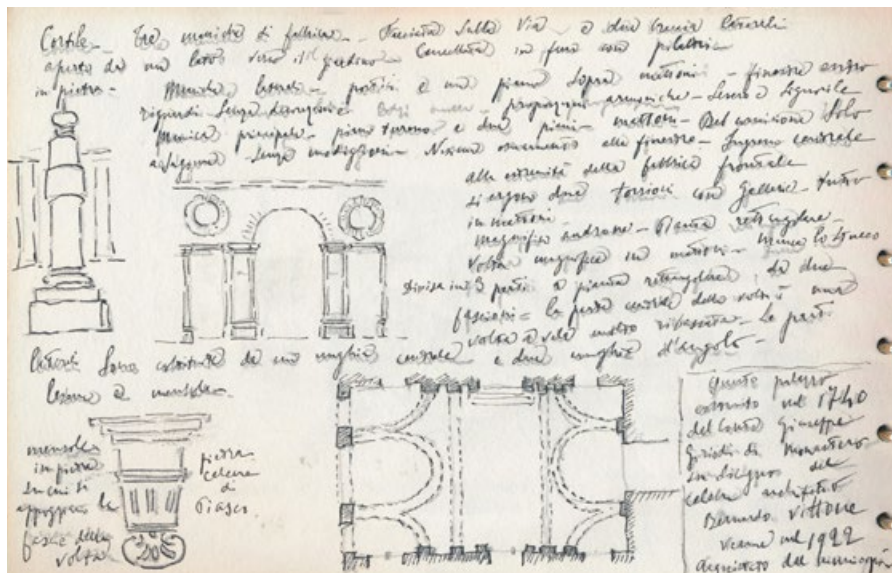 Cortile - Tre maniche di fabbrica - Facciata sulla Via - e due braccia laterali
aperto da un lato verso il giardino - Cancellata in ferro con pilastri
in pietra -
Manica laterale - portici e un piano sopra mattoni - finestre
riquadri senza decorazioni - proporzioni armoniche - Severo e Signorile
Manica principale - piano terreno e due piani - mattoni - Bel cornicione Solo
senza - Nessun ornamento alle finestre - Ingresso centrale
alle estremità della fabbrica frontale
si ergono due torrioni con gallerie - tutto
in mattoni -
magnifico androne - Pianta rettangolare
Volta magnifica in mattoni - manca lo stucco
Divisa in 3 parti a pianta rettangolare da due
fascioni - la parte centrale della volta è una
volta a vela molto ribassata - Le parti
laterali sono costituite da un unghia centrale e due unghie d'angolo -
lesene e mensole -
mensole
in pietra
su cui si
appoggiano le
fasce della
volta
pietra
calcare
di
Piasco
Questo palazzo
costruito nel 1740
dal Conte Giuseppe
di Monastero
su disegno del
celebre architetto
Bernardo Vittone
Venne nel 1922
acquistato dal municipio